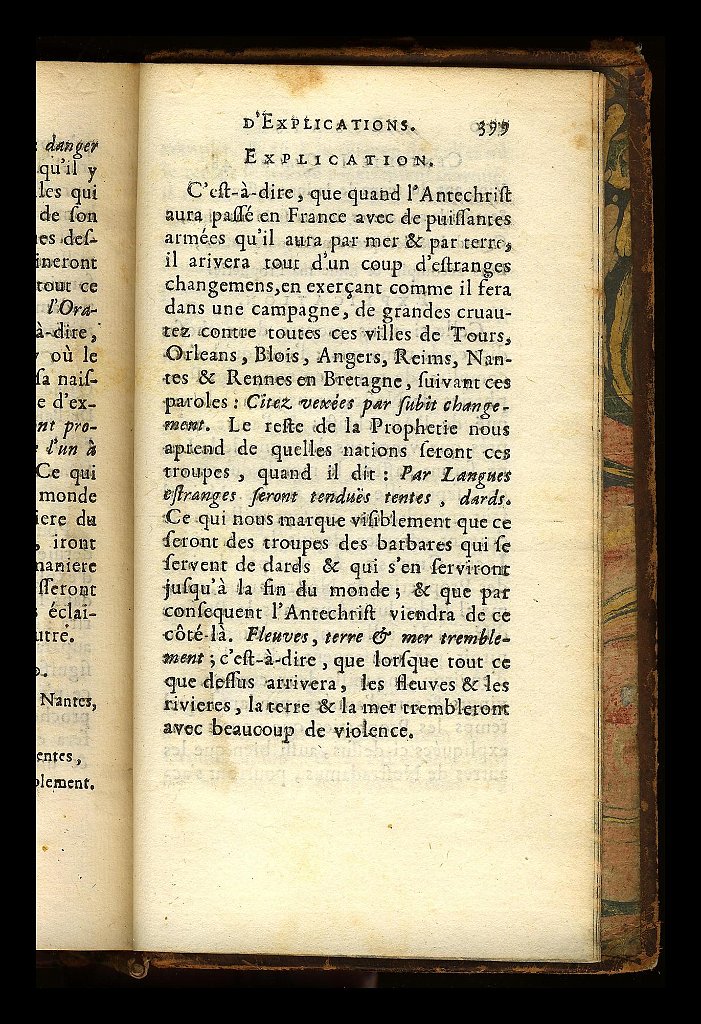 : danger
qu'il y
les qui
de ſon
es deſ-
ineront
tout ce
l'Ora-
à-dire,
où le
ſa naiſ-
e d'ex-
nt pro-
l'un à
Ce qui
monde
iere du
, iront
maniere
ſſeront
éclai-
utre.
Nantes,
entes,
blement.
D'EXPLICATIONS. 399
EXPLICATION.
C'eſt-à-dire, que quand l'Antechriſt
aura paſſé en France avec de puiſſantes
armées qu'il aura par mer & par terre,
il arivera tout d'un coup d'eſtranges
changemens, en exerçant comme il fera
dans une campagne, de grandes cruau-
tez contre toutes ces villes de Tours,
Orleans, Blois, Angers, Reims, Nan-
tes & Rennes en Bretagne, ſuivant ces
paroles : Citez vexées par ſubit change-
ment. Le reſte de la Prophetie nous
aprend de quelles nations ſeront ces
troupes, quand il dit : Par Langues
eſtranges ſeront tenduës tentes, dards.
Ce qui nous marque viſiblement que ce
ſeront des troupes des barbares qui ſe
ſervent de dards & qui s'en ſerviront
juſqu'à la fin du monde ; & que par
conſequent l'Antechriſt viendra de ce
côté-là. Fleuves, terre & mer tremble-
ment ; c'eſt-à-dire, que lorſque tout ce
que deſſus arrivera, les fleuves & les
rivieres, la terre & la mer trembleront
avec beaucoup de violence.